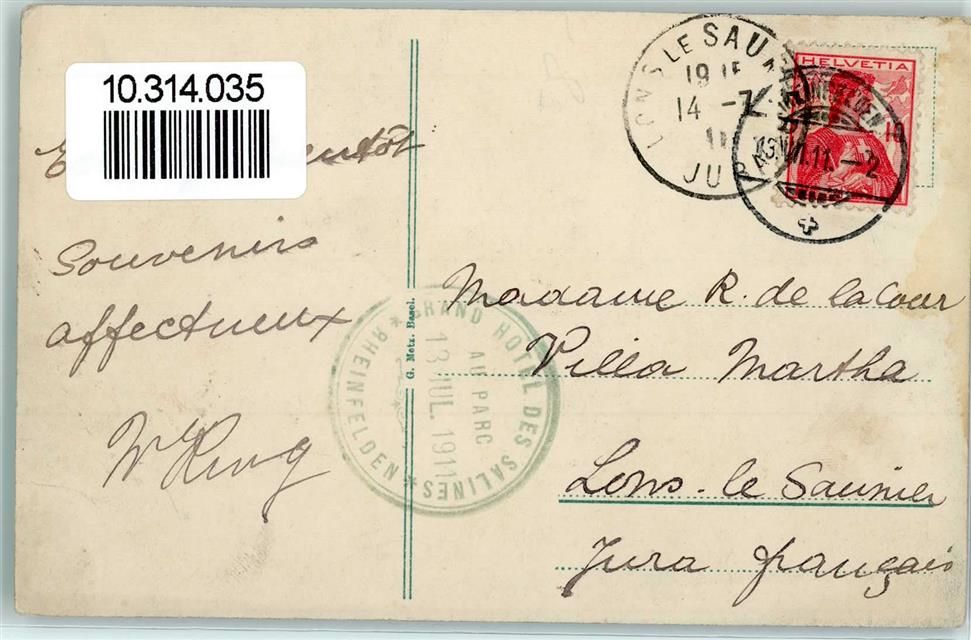 10.314.035
Souvenirs
affectueux
G. Metz, Basel.
GRAND HOTEL DES SALINES
AU PARC
13 JUL. 1911
* RHEINFELDEN *
LONS LE SAU
14 -7
JU
HELVETIA
10
RHEINFELDEN
11.-2
Madame R. de la Cour
Villa Martha
Lons-le Saunier
Jura français